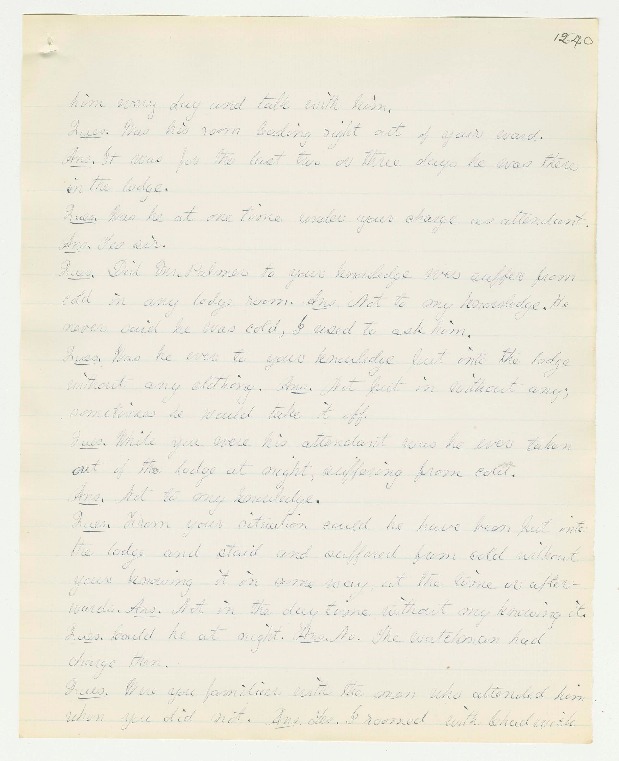 1240
him every day and talk with him.
Ques. Was his room leading right out of your ward.
Ans. It was for the last two or three days he was there
in the lodge.
Ques. Was he at one time under your charge as attendant.
Ans. Yes sir.
Ques. Did Mr. to your knowledge ever suffer from
cold in any lodge room. Ans. Not to my knowledge. He
never said he was cold, I used to ask him.
Ques. Was he ever to your knowledge put into the lodge
without any clothing. Ans. Not put in without any;
sometimes he would take it off.
Ques. While you were his attendant was he ever taken
out of the lodge at night, suffering from cold.
Ans. Not to my knowledge.
Ques. From your situation could he have been put into
the lodge and staid and suffered from cold without
your knowing it in some way, at the time or after-
wards. Ans. Not in the day time without my knowing it.
Ques. Could he at night. Ans. No. The watchman had
charge then.
Ques. Were you familiar with the man who attended him
when you did not. Ans. Yes. I roomed with